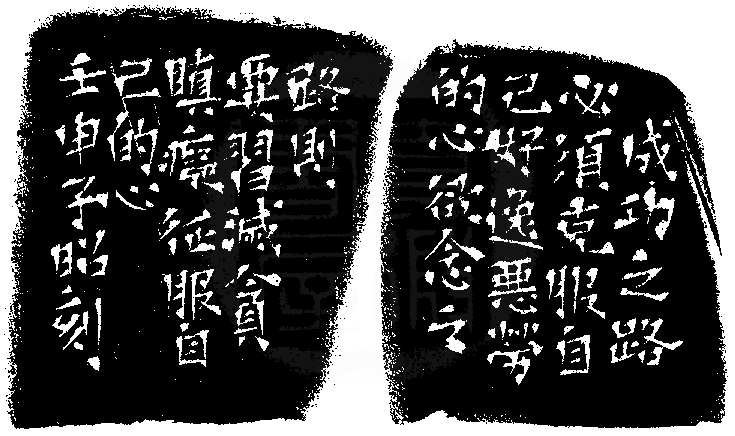 成功之路
必須克服自
己好逸惡勞
的心欲念之
路則
要習滅貪
瞋癡征服自
己的心
壬申子昭刻